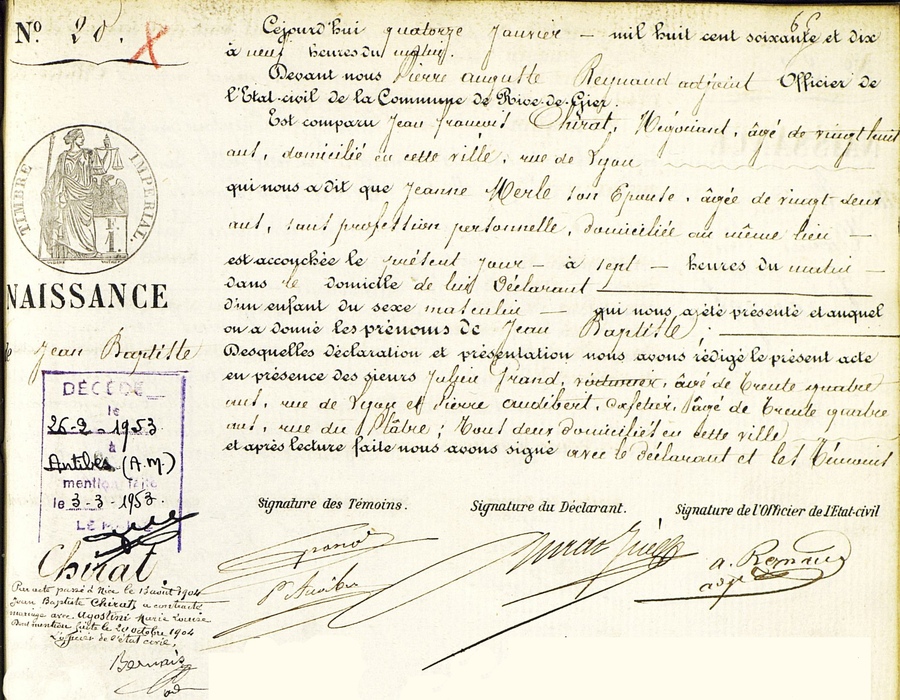 Nº 20.
TIMBRE IMPERIAL
F. 1.
NAISSANCE
Jean Baptiste
DÉCÉDÉ
le
26-2-1953
à
Antibes (A.M.)
mention faite
le 3-3-1953.
LE
Chirat
Par acte passé à Nice le 13 août 1904
Jean Baptiste Chirat, a contracté
mariage avec Agostini Marie Louise
Dont mention faite le 20 octobre 1904
de l'état civil,
Cejourd'hui quatorze Janvier — mil huit cent soixante et dix
à neuf heures du matin.
Devant nous Pierre auguste Reynaud adjoint Officier de
l'Etat-civil de la Commune de Rive-de-Gier.
Est comparu Jean francois Chirat, Négociant, âgé de vingt huit
ans, domicilié en cette ville, rue de Lyon
qui nous a dit que Jeanne Merle son Epouse, âgée de vingt deux
ans, sans profession personnelle, domiciliée au même lieu —
est accouchée le présent jour — à sept — heures du matin —
dans le domicile de lui Déclarant
d'un enfant du sexe masculin — qui nous a été présenté et auquel
on a donné les prénoms de Jean Baptiste.
Desquelles déclaration et présentation nous avons rédigé le présent acte
en présence des sieurs Julien Grand, âgé de trente quatre
ans, rue de Lyon et Pierre cafetier, âgé de trente quatre
ans, rue du Plâtre; tous deux domiciliés en cette ville
et après lecture faite nous avons signé avec le déclarant et les témoins
Signature des Témoins. Signature du Déclarant. Signature de l'Officier de l'Etat-civil